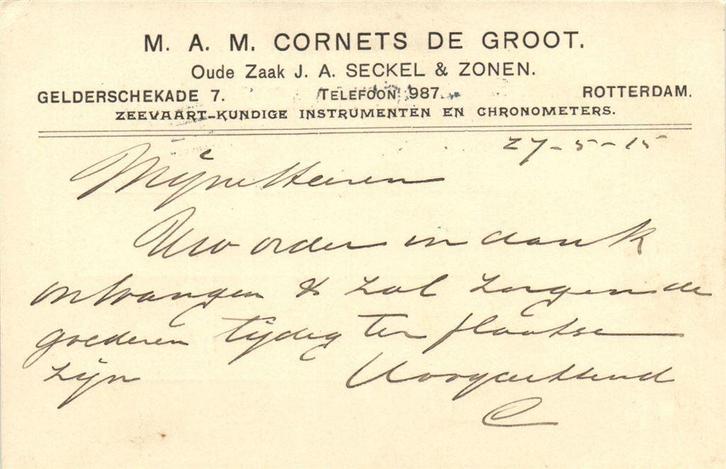 M. A. M. CORNETS DE GROOT.
Oude Zaak J. A. SECKEL & ZONEN.
GELDERSCHEKADE 7. TELEFOON 987. ROTTERDAM.
ZEEVAART-KUNDIGE INSTRUMENTEN EN CHRONOMETERS.
27-5-15
Mijne Heeren
Uw order in dank
ontvangen & zal zorgen de
goederen tijdig ter plaatse
zijn Hoogachtend
C